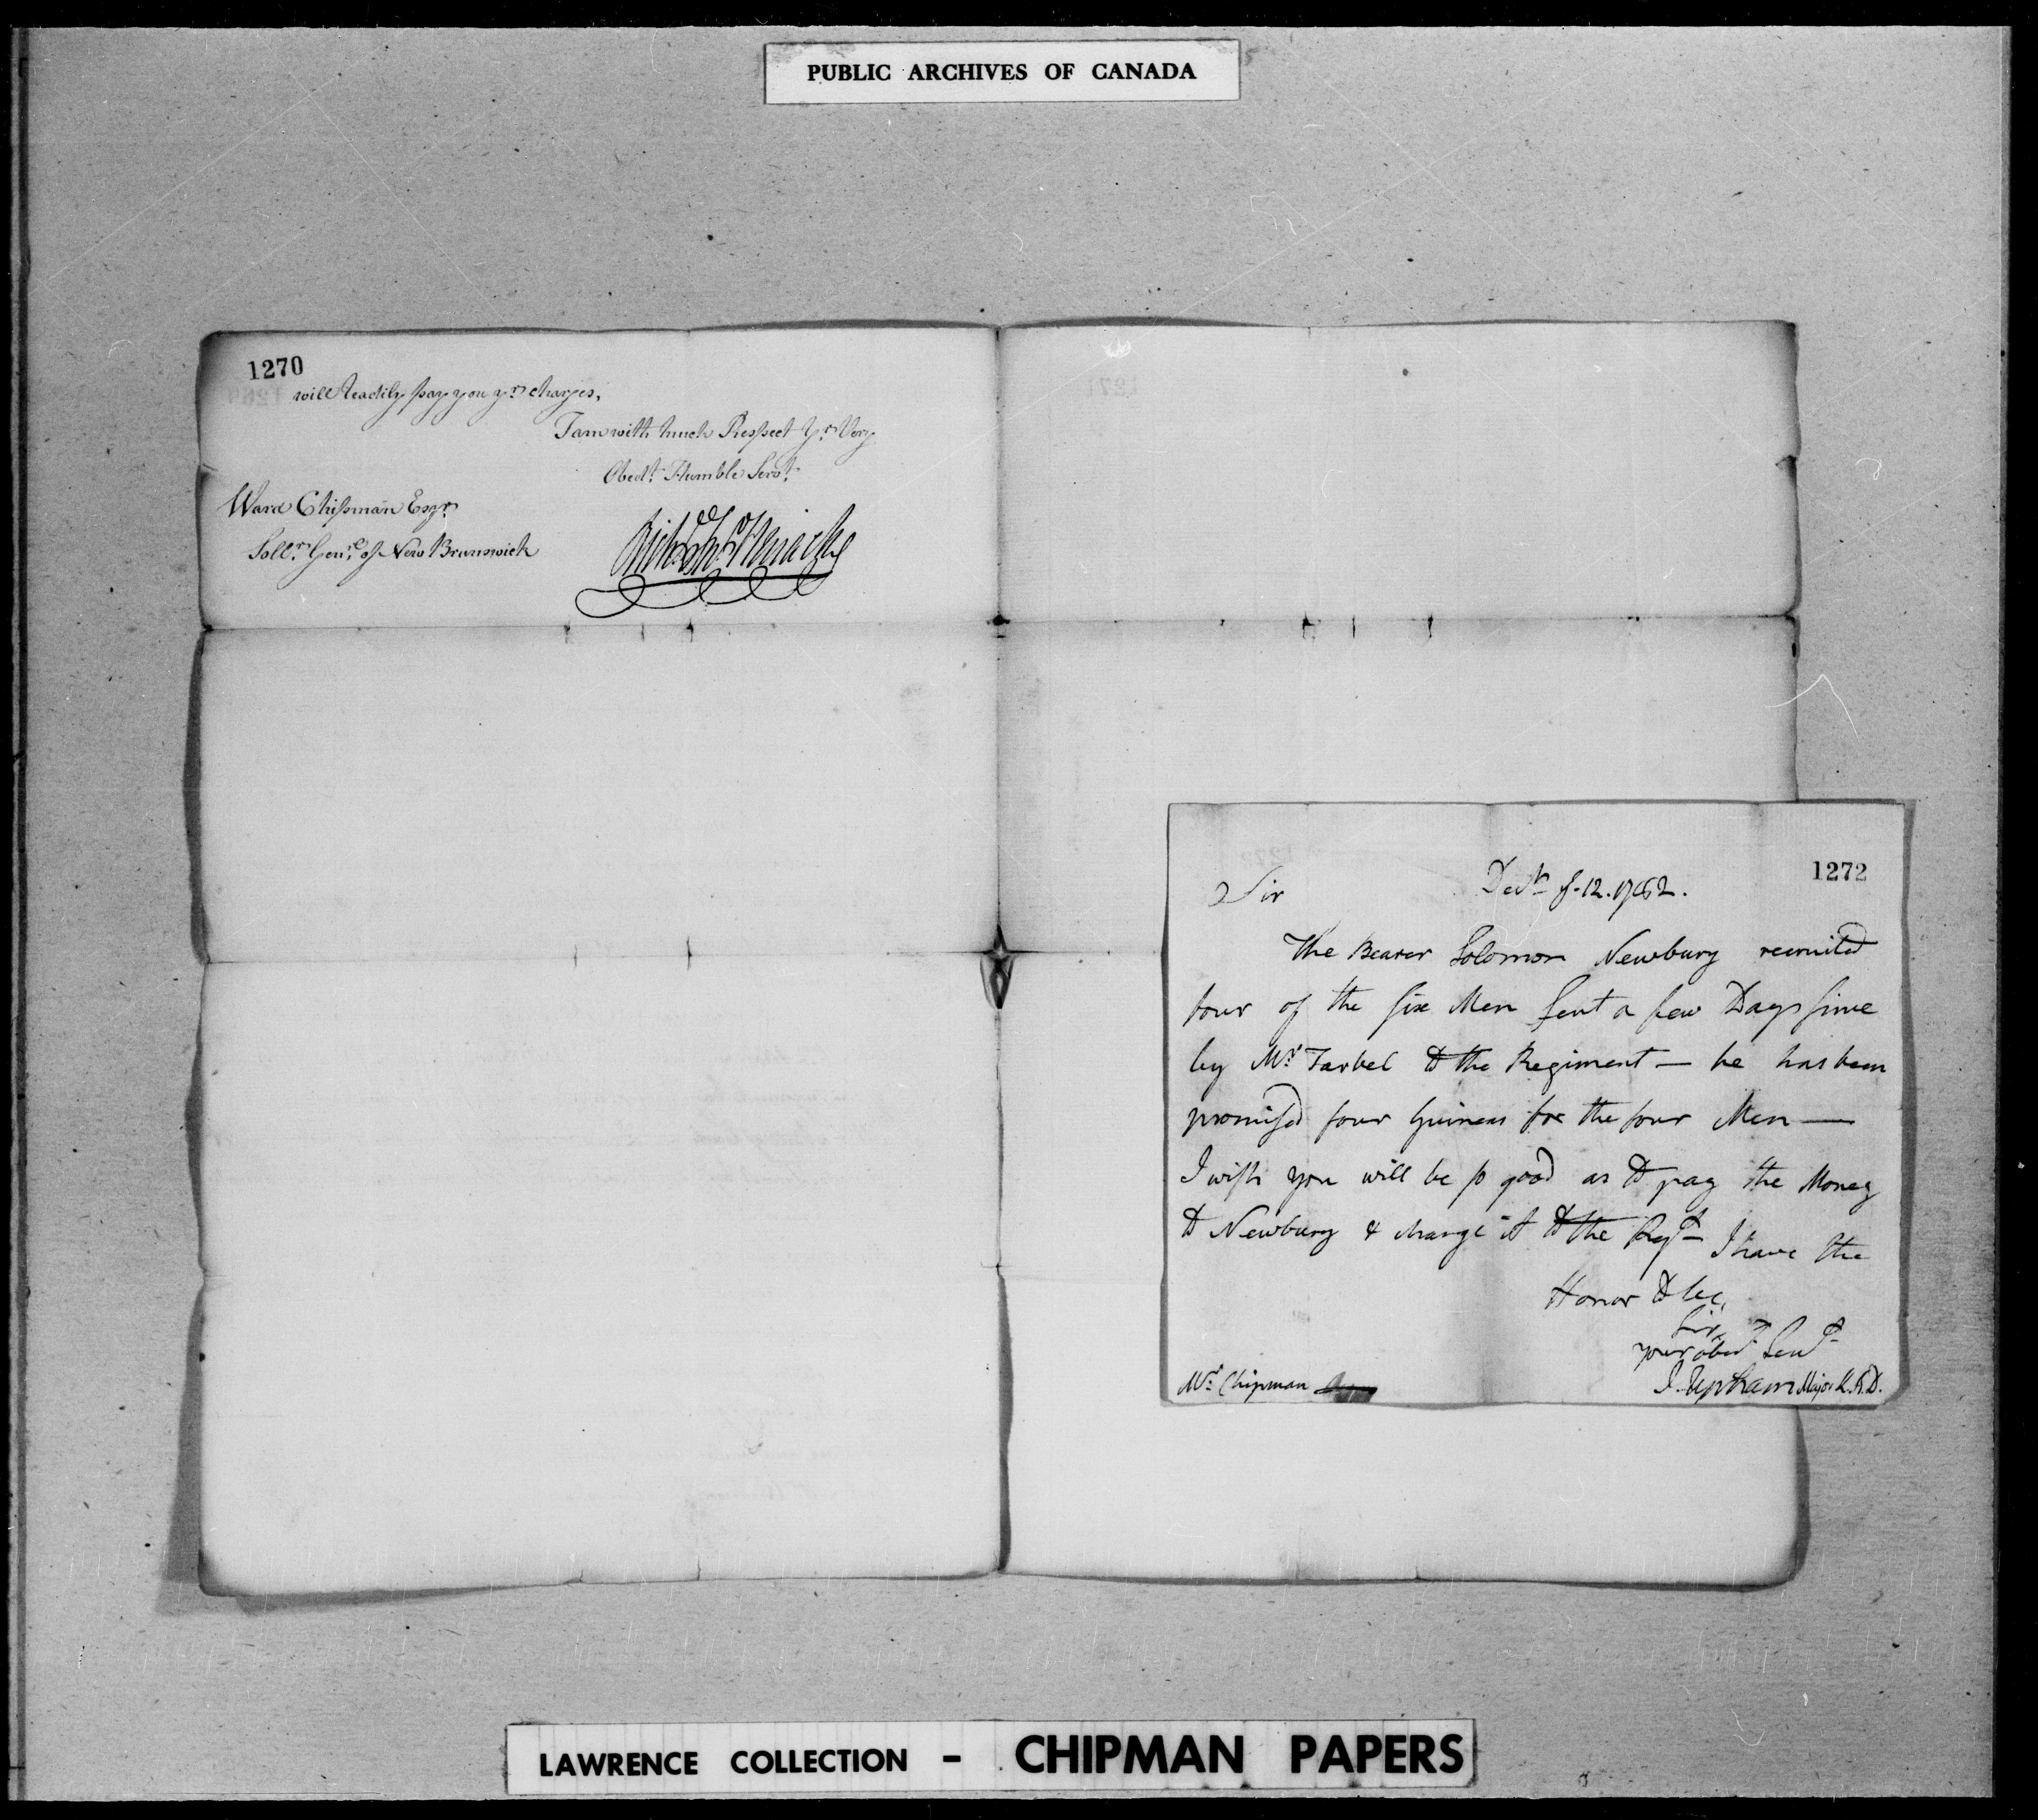 PUBLIC ARCHIVES OF CANADA
1270
will readily pay you yr. charges,
I am with much Respect Yr. Very
Obedt. Humble Servt.
Ward Chipman Esqr.
Sollr. Genrl. of New Brunswick
1272
Sir
Decr. 12. 1782.
The Bearer Solomon Newbury recruited
four of the six Men sent a few Days since
by Mr. Tarbel to the Regiment — he has been
promised four Guineas for the four Men —
I wish you will be so good as to pay the Money
to Newbury & charge it to the Regt. I have the
Honor to be,
Sir
your obedt. Servt.
J. Upham Major K.A.D.
Mr. Chipman
LAWRENCE COLLECTION - CHIPMAN PAPERS